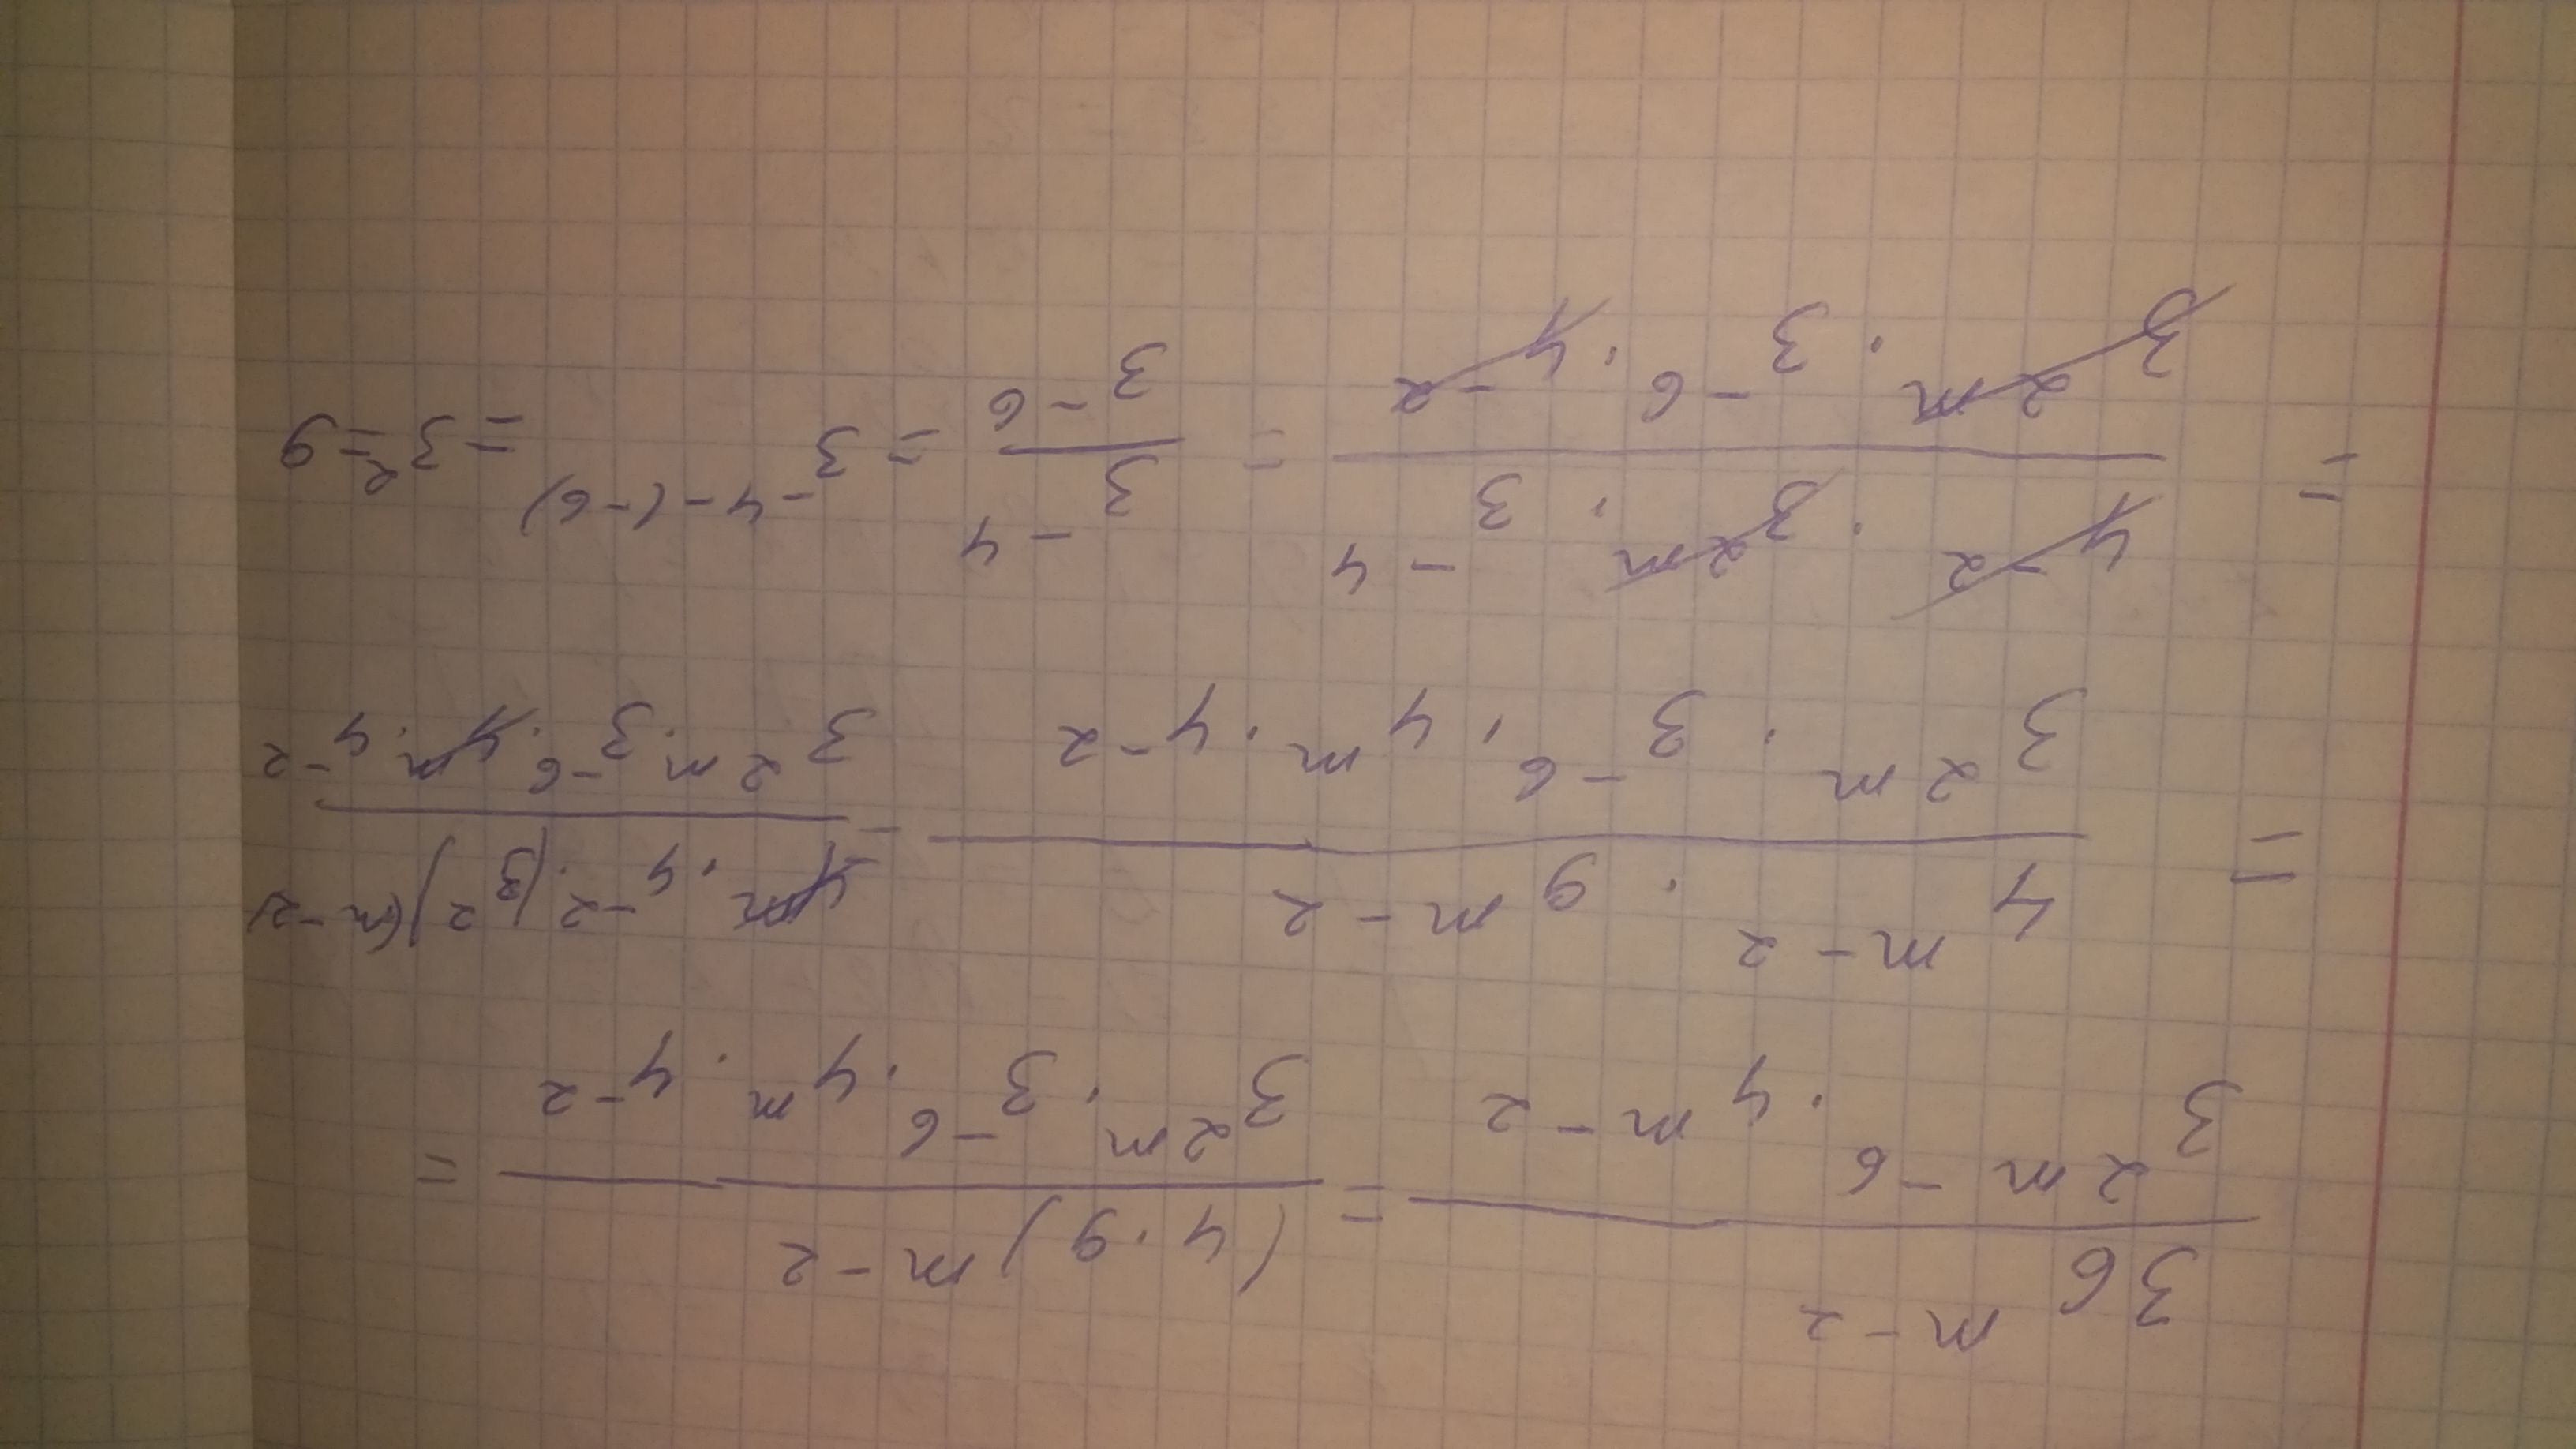 36^{m-2} / 3^{2m-6} · 4^{m-2} = (4·9)^{m-2} / 3^{2m} · 3^{-6} · 4^m · 4^{-2} =
= 4^{m-2} · 9^{m-2} / 3^{2m} · 3^{-6} · 4^m · 4^{-2} = 4^m · 4^{-2} · (3^2)^{(m-2)} / 3^{2m} · 3^{-6} · 4^m · 4^{-2}
= 4^{-2} · 3^{2m} · 3^{-4} / 3^{2m} · 3^{-6} · 4^{-2} = 3^{-4} / 3^{-6} = 3^{-4-(-6)} = 3^2 = 9